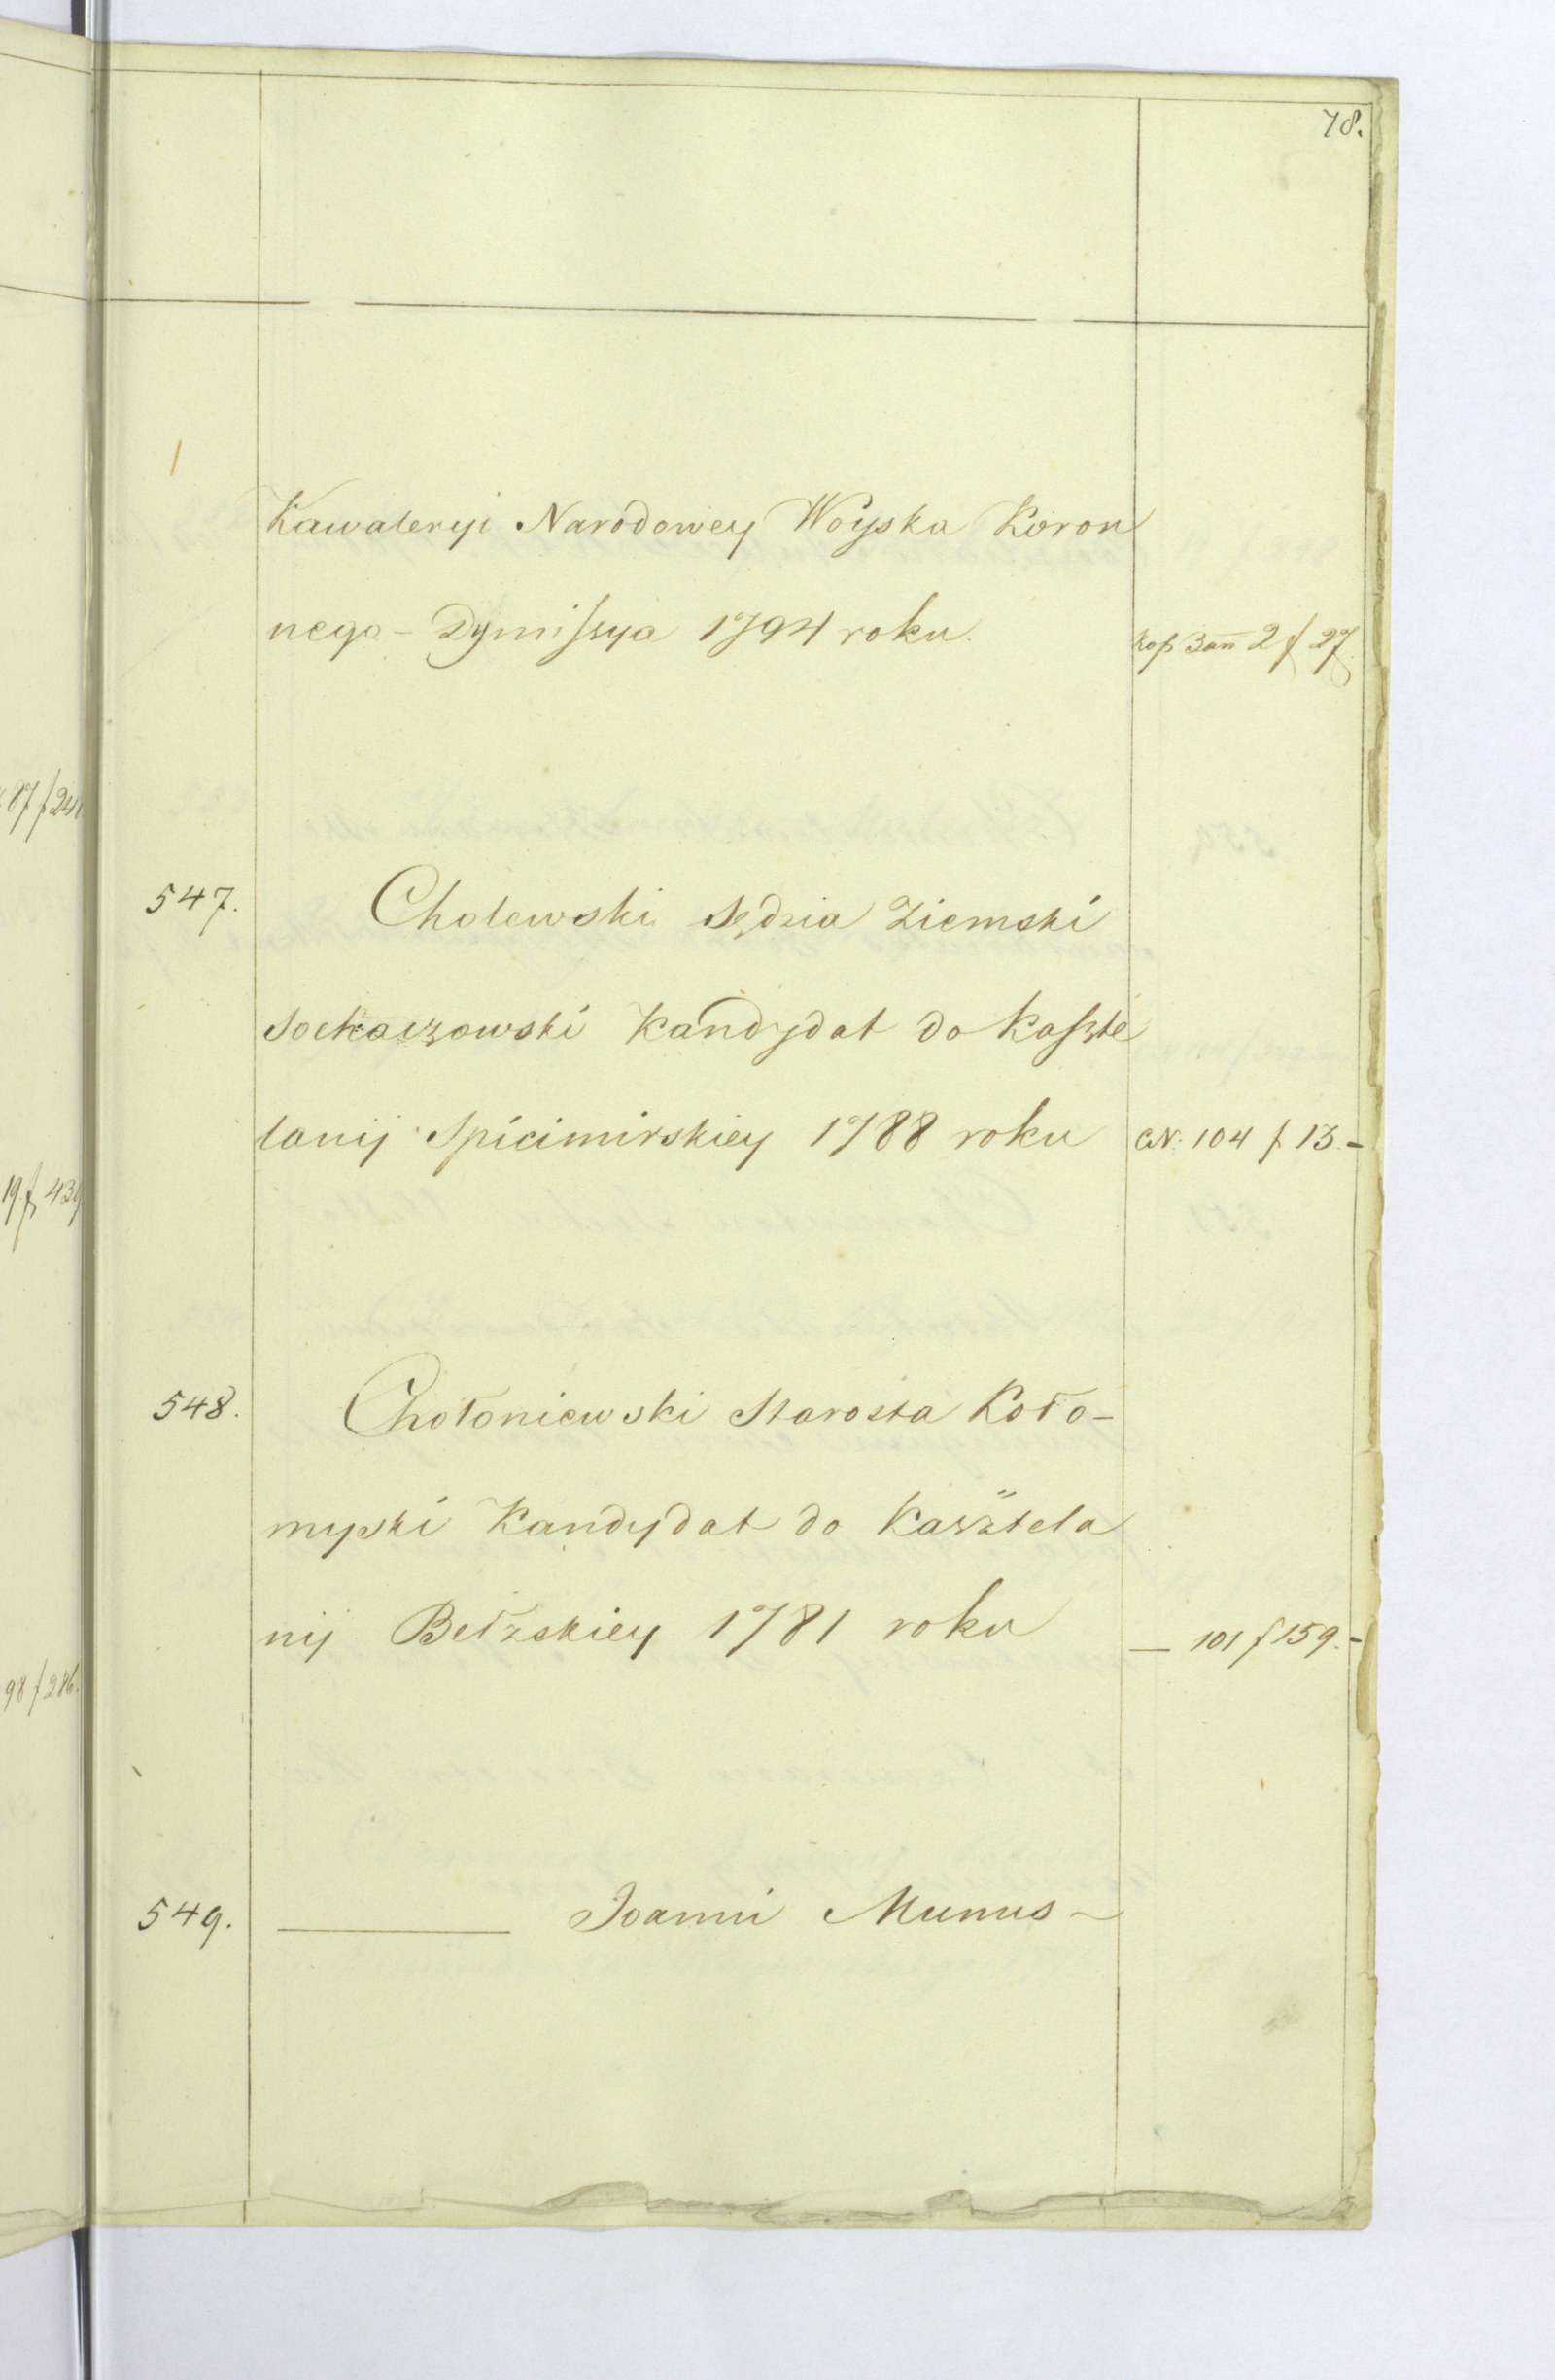 78.
Kawaleryi Narodowey Woyska Koron
nego - Dymissya 1794 roku. 2 f 27.
87 f 241
547. Cholewski Sędzia Ziemski
Sochaczowski Kandydat do Kasztel
lanij Spicimirskiey 1788 roku N. 104 f 13 -
19 f 439
548. Chołoniewski Starosta Koło-
myski Kandydat do Kasztela
nij Bełzskiey 1781 roku — 101 f 159. -
98 f 286.
549. ——— Joanni Munus -